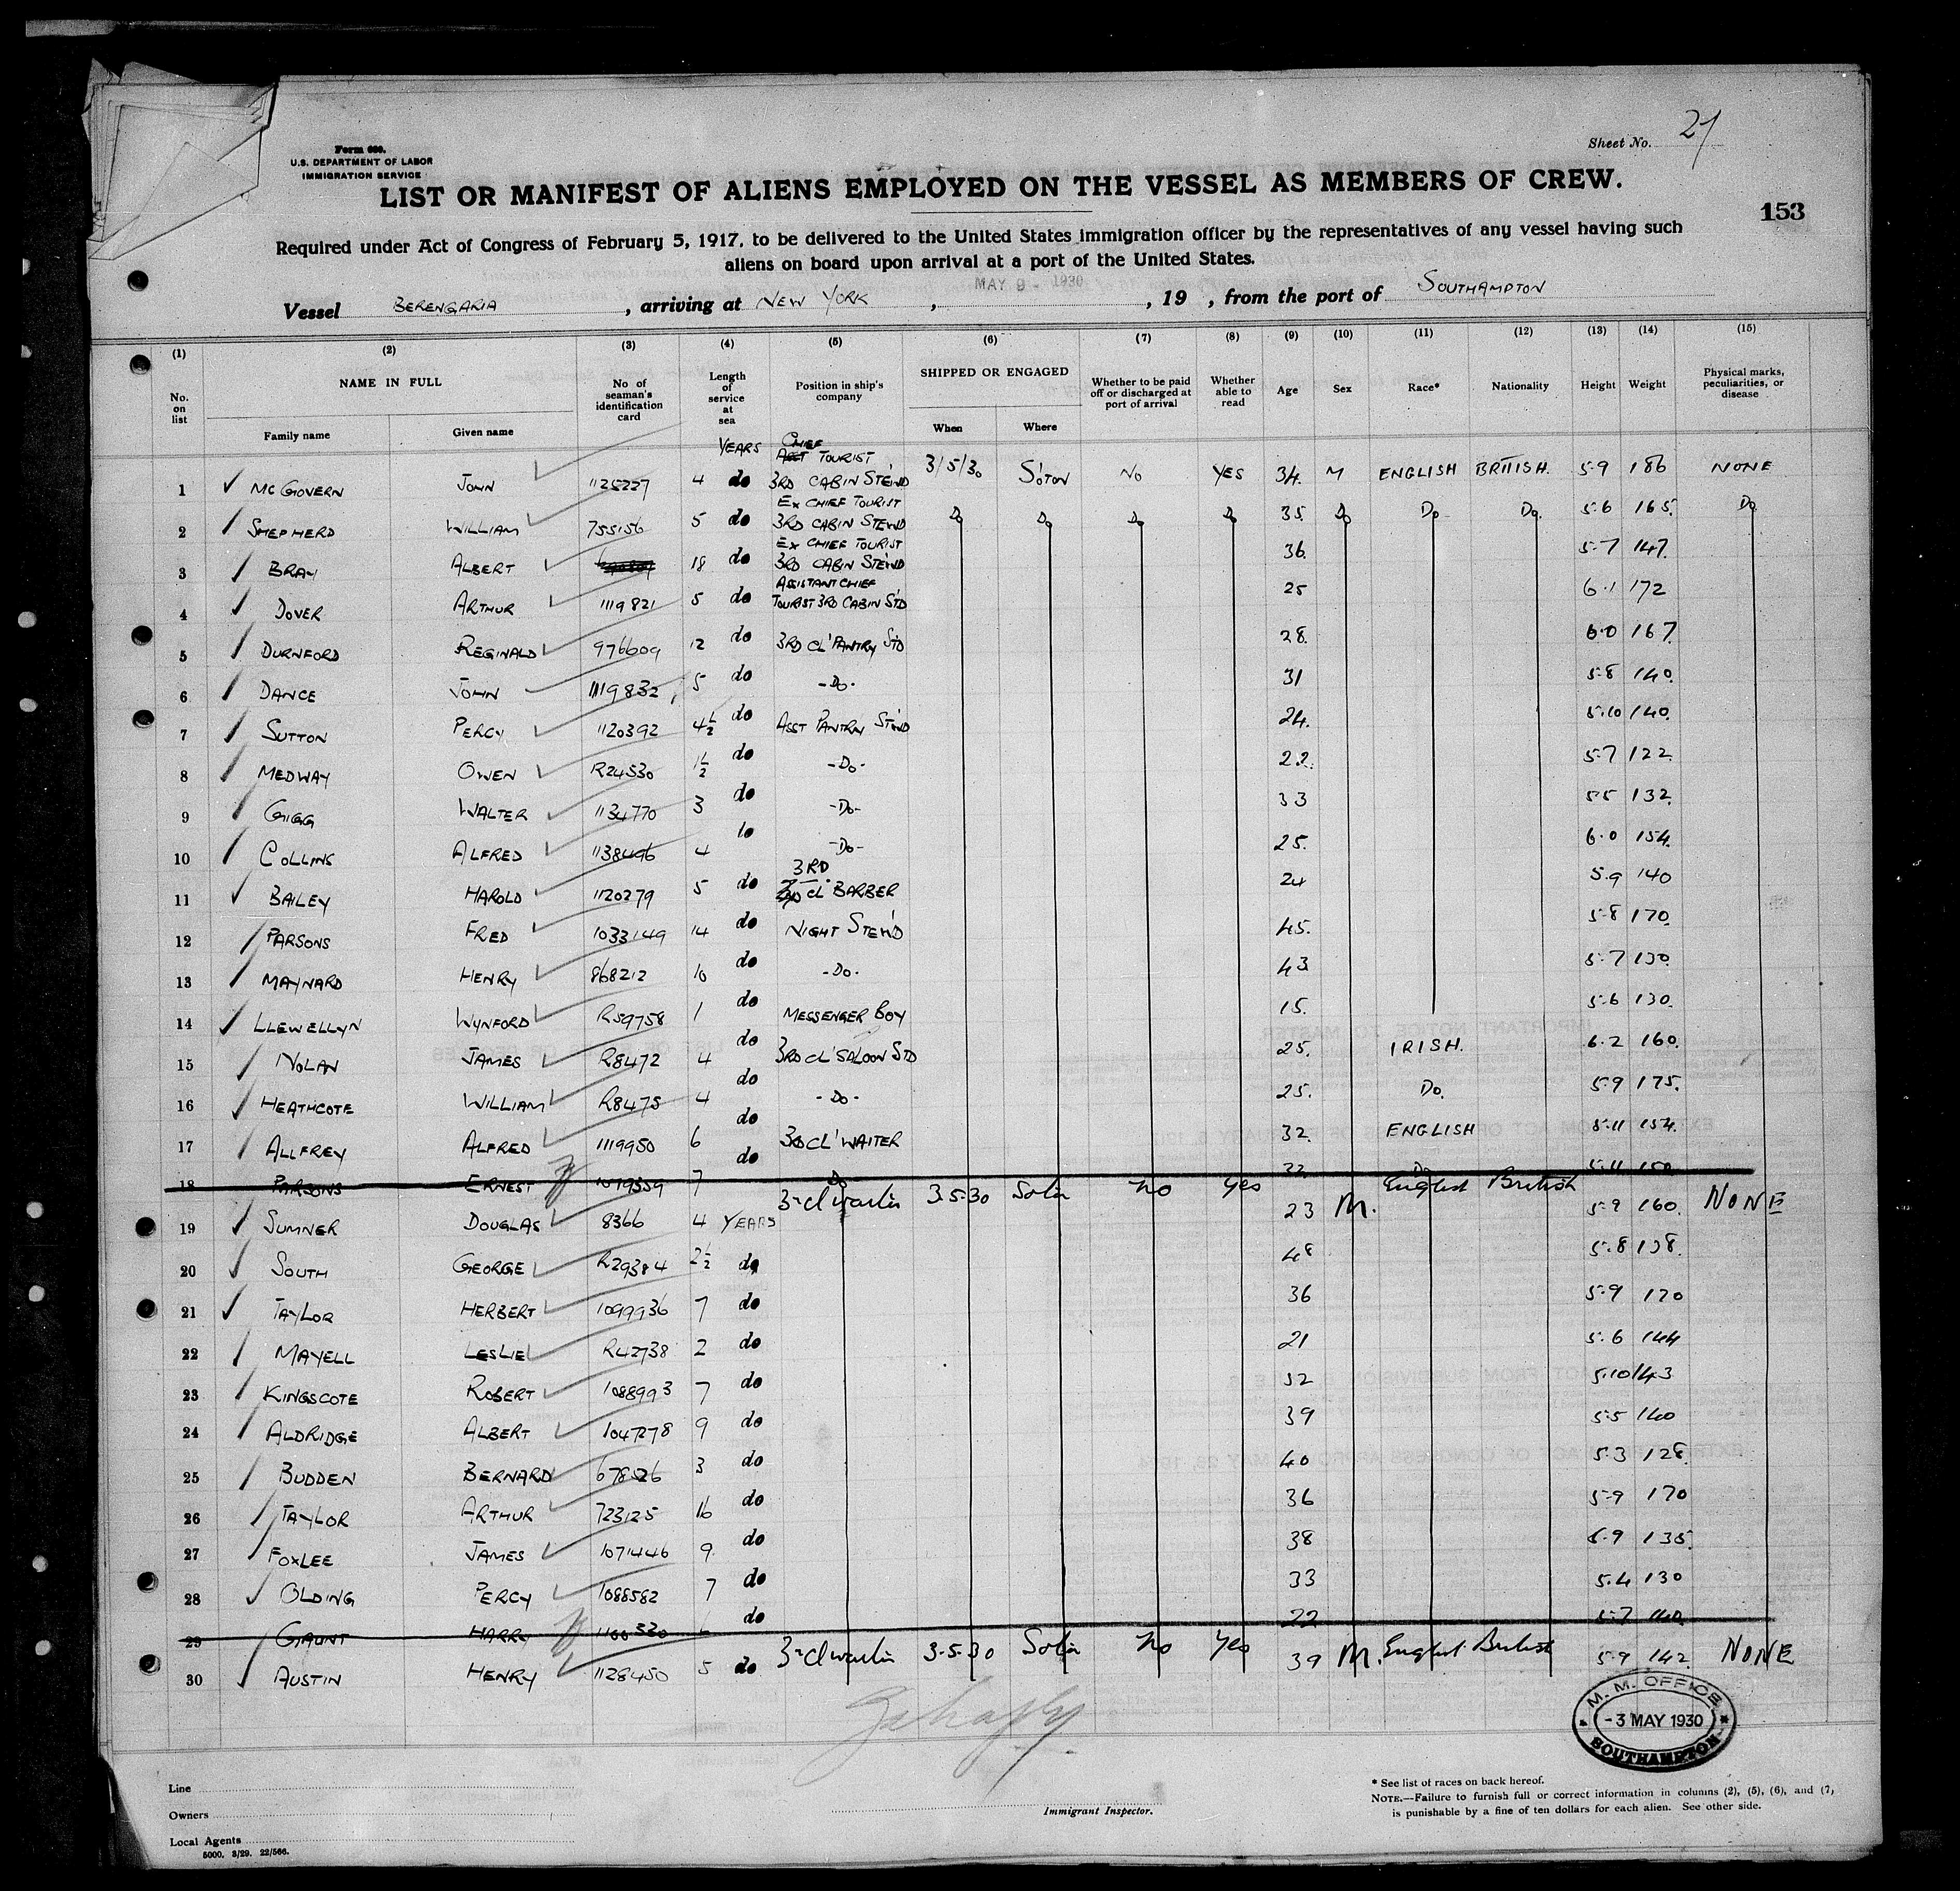 Sheet No. 27
Form 680.
U.S. DEPARTMENT OF LABOR
IMMIGRATION SERVICE
LIST OR MANIFEST OF ALIENS EMPLOYED ON THE VESSEL AS MEMBERS OF CREW.
153
Required under Act of Congress of February 5, 1917, to be delivered to the United States immigration officer by the representatives of any vessel having such
aliens on board upon arrival at a port of the United States.
MAY 9 - 1930
Vessel BERENGARIA, arriving at NEW YORK, , 19 , from the port of SOUTHAMPTON
(1) (2) (3) (4) (5) (6) (7) (8) (9) (10) (11) (12) (13) (14) (15)
No. on list
NAME IN FULL
Family name
Given name
No. of seaman's identification card
Length of service at sea
Position in ship's company
SHIPPED OR ENGAGED
When
Where
Whether to be paid off or discharged at port of arrival
Whether able to read
Age
Sex
Race*
Nationality
Height
Weight
Physical marks, peculiarities, or disease
YEARS CHIEF
ASST TOURIST
1 McGOVERN JOHN 1125227 4 do 3RD CABIN STEWD 3/5/30 S'OTON NO YES 34 M ENGLISH BRITISH. 5-9 186 NONE
EX CHIEF TOURIST
2 SHEPHERD WILLIAM 755156 5 do 3RD CABIN STEWD Do Do Do Do 35. Do Do Do. 5-6 165. Do
EX CHIEF TOURIST
3 BRAY ALBERT 18 do 3RD CABIN STEWD 36. 5-7 147.
ASSISTANT CHIEF
4 DOVER ARTHUR 1119821 5 do TOURIST 3RD CABIN STD 25 6-1 172
5 DURNFORD REGINALD 976609 12 do 3RD CL PANTRY STD 28. 6-0 167.
6 DANCE JOHN 1119832 5 do -Do- 31 5-8 140.
7 SUTTON PERCY 1120392 4½ do ASST PANTRY STEWD 24. 5.10 140.
8 MEDWAY OWEN R24530 1½ do -Do- 22. 5-7 122.
9 GIGG WALTER 1134770 3 do -Do- 33 5-5 132.
10 COLLINS ALFRED 1138496 4 do -Do- 25. 6-0 154.
3RD
11 BAILEY HAROLD 1120279 5 do 2ND CL BARBER 24 5-9 140
12 PARSONS FRED 1033149 14 do NIGHT STEWD 45. 5-8 170.
13 MAYNARD HENRY 868212 10 do -Do- 43 5-7 130.
14 LLEWELLYN WYNFORD R59758 1 do MESSENGER BOY 15. 5-6 130.
15 NOLAN JAMES R8472 4 do 3RD CL SALOON STD 25. IRISH. 6-2 160.
16 HEATHCOTE WILLIAM R8475 4 do -Do- 25. Do. 5-9 175.
17 ALLFREY ALFRED 1119950 6 do 3RD CL WAITER 32. ENGLISH 5-11 154.
18 PARSONS ERNEST 1019559 7 do Do 5-11 150
19 SUMNER DOUGLAS 8366 4 YEARS 3rd cl waiter 3.5.30 Soton No Yes 23 M. English British 5-9 160. NONE
20 SOUTH GEORGE R29384 2½ do 48 5-8 138.
21 TAYLOR HERBERT 1099936 7 do 36 5-9 170
22 MAYELL LESLIE R42738 2 do 21 5-6 144
23 KINGSCOTE ROBERT 1088993 7 do 32 5.10 143
24 ALDRIDGE ALBERT 1047278 9 do 39 5-5 140
25 BUDDEN BERNARD 67826 3 do 40 5-3 128.
26 TAYLOR ARTHUR 723125 16 do 36 5-9 170
27 FOXLEE JAMES 1071446 9. do 38 5-9 135.
28 OLDING PERCY 1088582 7 do 33 5.4 130
29 GAUNT HARRY 1100530 6 do 22 5-7 140.
30 AUSTIN HENRY 1128450 5 do 3rd cl waiter 3.5.30 Soton No Yes 39 M. English British 5-9 142. NONE
M. M. OFFICE
- 3 MAY 1930
SOUTHAMPTON
Line
Owners
Local Agents
5000. 3/29. 22/566.
Immigrant Inspector.
* See list of races on back hereof.
NOTE.—Failure to furnish full or correct information in columns (2), (5), (6), and (7,
is punishable by a fine of ten dollars for each alien. See other side.